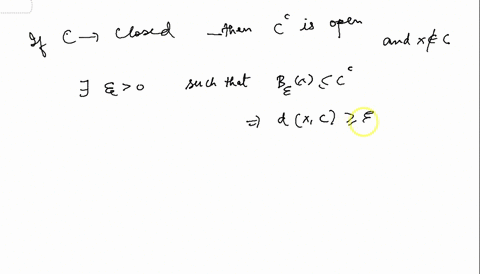 If C → closed then Cᶜ is open and x ∉ C
∃ ε > 0 such that B_ε(x) ⊆ Cᶜ
⇒ d(x, C) ≥ ε